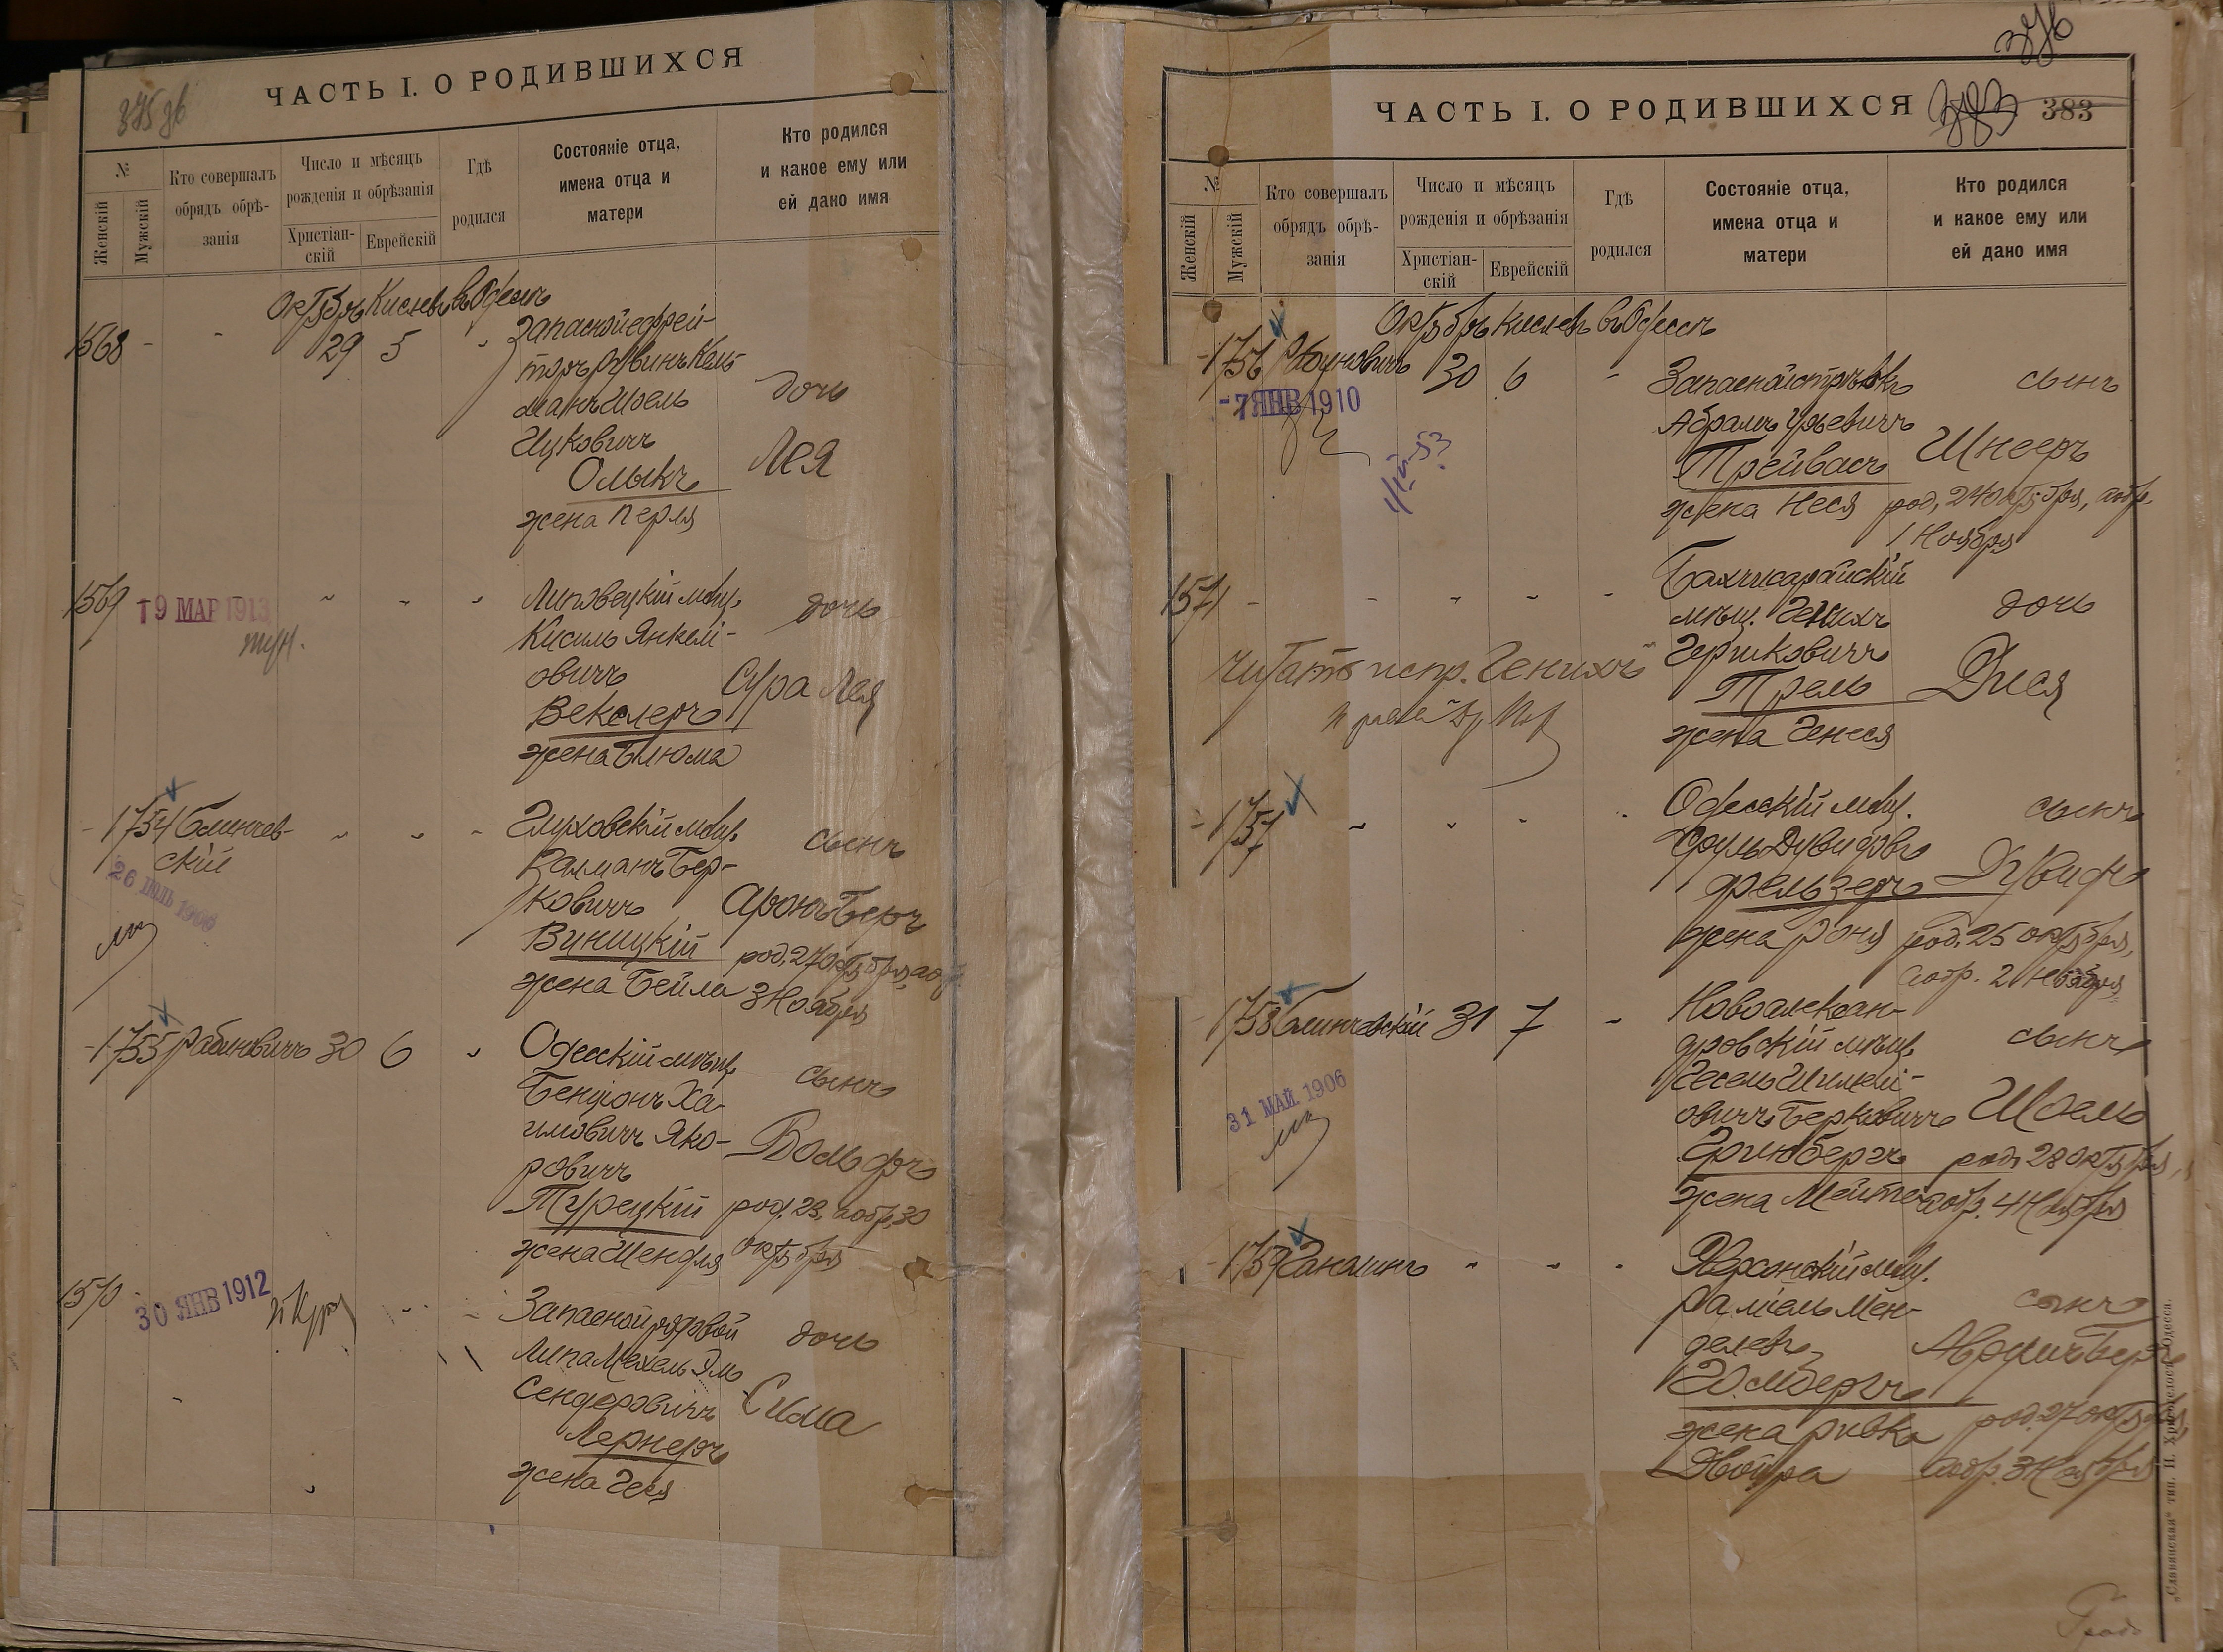 375 об
ЧАСТЬ I. О РОДИВШИХСЯ
№
Женскій
Мужскій
Кто совершалъ
обрядъ обрѣ-
занія
Число и мѣсяцъ
рожденія и обрѣзанія
Христіан-
скій
Еврейскій
Гдѣ
родился
Состояніе отца,
имена отца и
матери
Кто родился
и какое ему или
ей дано имя
Октябрь Кислевъ въ Одессѣ
1568 - - 29 5 "
Запасной ефрей-
торъ Рувинъ Кель-
манъ Шоель
Ицковичъ
Олыкъ
жена Перля
дочь
Лея
1569
19 МАР 1913
Липовецкій мѣщ.
Кисиль Янкелі-
овичъ
Векслеръ
жена Блюма
дочь
Сура Лея
- 1754 Блинчев-
скій
26 ІЮЛЬ 1906
Глуховскій мѣщ.
Калманъ Бер-
ковичъ
Виницкій
жена Бейла
сынъ
Аронъ Беръ
род. 27 октября, а обр.
3 Ноября
- 1755 Рабиновичъ 30 6 "
Одесскій мѣщ.
Бенціонъ Ха-
имовичъ Яко-
ровичъ
Турецкій
жена Шендля
сынъ
Вольфъ
род. 23, а обр. 30
октября
1570
30 ЯНВ 1912
Запасной рядовой
Липа Мехель Эль
Сендеровичъ
Лернеръ
жена Геня
дочь
Сима
376
383
383
ЧАСТЬ I. О РОДИВШИХСЯ
№
Женскій
Мужскій
Кто совершалъ
обрядъ обрѣ-
занія
Число и мѣсяцъ
рожденія и обрѣзанія
Христіан-
скій
Еврейскій
Гдѣ
родился
Состояніе отца,
имена отца и
матери
Кто родился
и какое ему или
ей дано имя
Октябрь Кислевъ въ Одессѣ
- 1756 Рабиновичъ 30 6 "
- 7 ЯНВ 1910
Запасной стрѣлокъ
Абрамъ Урьевичъ
Трейвасъ
жена Неся
сынъ
Шнееръ
род. 24 октября, а обр.
1 Ноября
1571 -
Бахчисарайскій
мѣщ. Генихъ
Гершковичъ
Трель
жена Генеся
дочь
Дися
читать испр. "Генихъ"
- 1757
Одесскій мѣщ.
Сруль Дувидовъ
Фельзеръ
жена Роня
сынъ
Дувидъ
род. 25 октября,
а обр. 2 ноября
- 1758 Блинчевскій 31 7 "
31 МАЙ 1906
Новоалексан-
дровскій мѣщ.
Гесель Шмилі-
овичъ Берковичъ
Гринбергъ
жена Мейте
сынъ
Шоель
род. 28 октября,
а обр. 4 Ноября
- 1759 Ганолинъ
Херсонскій мѣщ.
Рахміель Мен-
делевъ
Гольдбергъ
жена Ривка
Двойра
сынъ
Аврумъ Беръ
род. 27 октября,
а обр. 3 Ноября
„Славянская“ тип. Н. Хрисогелосъ, Одесса.